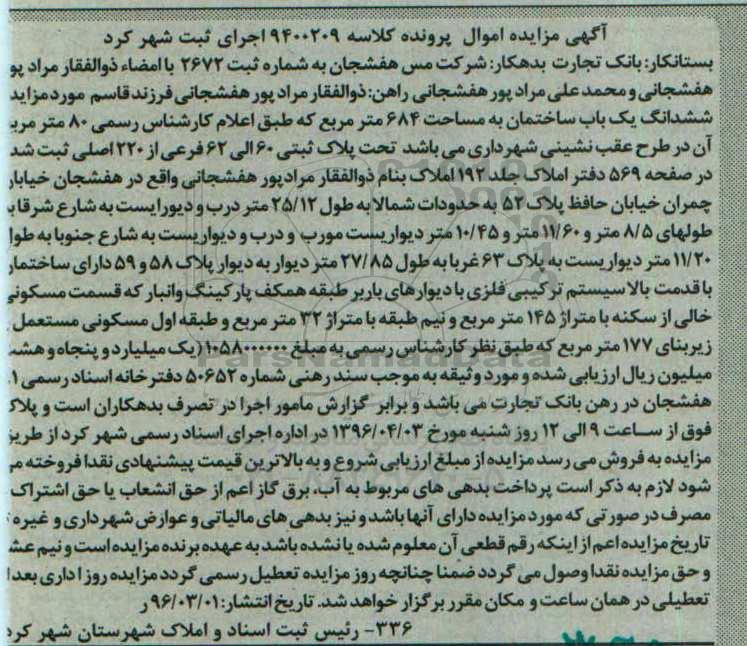 آگهی مزایده اموال پرونده کلاسه ۹۴۰۰۲۰۹ اجرای ثبت شهر کرد
بستانکار: بانک تجارت بدهکار: شرکت مس هفشجان به شماره ثبت ۲۶۷۲ با امضاء ذوالفقار مراد پو
هفشجانی و محمد علی مراد پور هفشجانی راهن: ذوالفقار مراد پور هفشجانی فرزند قاسم مورد مزاید
ششدانگ یک باب ساختمان به مساحت ۶۸۴ متر مربع که طبق اعلام کارشناس رسمی ۸۰ متر مرب
آن در طرح عقب نشینی شهرداری می باشد تحت پلاک ثبتی ۶۰ الی ۶۲ فرعی از ۲۲۰ اصلی ثبت شد
در صفحه ۵۶۹ دفتر املاک جلد ۱۹۲ املاک بنام ذوالفقار مراد پور هفشجانی واقع در هفشجان خیابان
چمران خیابان حافظ پلاک ۵۲ به حدودات شمالا به طول ۲۵/۱۲ متر درب و دیورایست به شارع شرقا ب
طولهای ۸/۵ متر و ۱۱/۶۰ متر و ۱۰/۴۵ متر دیواریست مورب و درب و دیواریست به شارع جنوبا به طول
۱۱/۲۰ متر دیواریست به پلاک ۶۳ غربا به طول ۲۷/۸۵ متر دیوار به دیوار پلاک ۵۸ و ۵۹ دارای ساختمان
با قدمت بالا سیستم ترکیبی فلزی با دیوارهای باربر طبقه همکف پارکینگ وانبار که قسمت مسکونی
خالی از سکنه با متراژ ۱۴۵ متر مربع و نیم طبقه با متراژ ۳۲ متر مربع و طبقه اول مسکونی مستعمل
زیربنای ۱۷۷ متر مربع که طبق نظر کارشناس رسمی به مبلغ ۱۰۵۸۰۰۰۰۰۰ (یک میلیارد و پنجاه و هشت
میلیون ریال ارزیابی شده و مورد وثیقه به موجب سند رهنی شماره ۵۰۶۵۲ دفتر خانه اسناد رسمی ۱
هفشجان در رهن بانک تجارت می باشد و برابر گزارش مامور اجرا در تصرف بدهکاران است و پلاک
فوق از ساعت ۹ الی ۱۲ روز شنبه مورخ ۱۳۹۶/۰۴/۰۳ در اداره اجرای اسناد رسمی شهر کرد از طریق
مزایده به فروش می رسد مزایده از مبلغ ارزیابی شروع و به بالاترین قیمت پیشنهادی نقدا فروخته می
شود لازم به ذکر است پرداخت بدهی های مربوط به آب، برق گاز اعم از حق انشعاب یا حق اشتراک
مصرف در صورتی که مورد مزایده دارای آنها باشد و نیز بدهی های مالیاتی و عوارض شهرداری و غیره
تاریخ مزایده اعم از اینکه رقم قطعی آن معلوم شده یا نشده باشد به عهده برنده مزایده است و نیم عش
و حق مزایده نقدا وصول می گردد ضمنا چنانچه روز مزایده تعطیل رسمی گردد مزایده روز اداری بعد
تعطیلی در همان ساعت و مکان مقرر برگزار خواهد شد. تاریخ انتشار: ۹۶/۰۳/۰۱ ر
۳۳۶- رئیس ثبت اسناد و املاک شهرستان شهر کرد
ParsNamadData